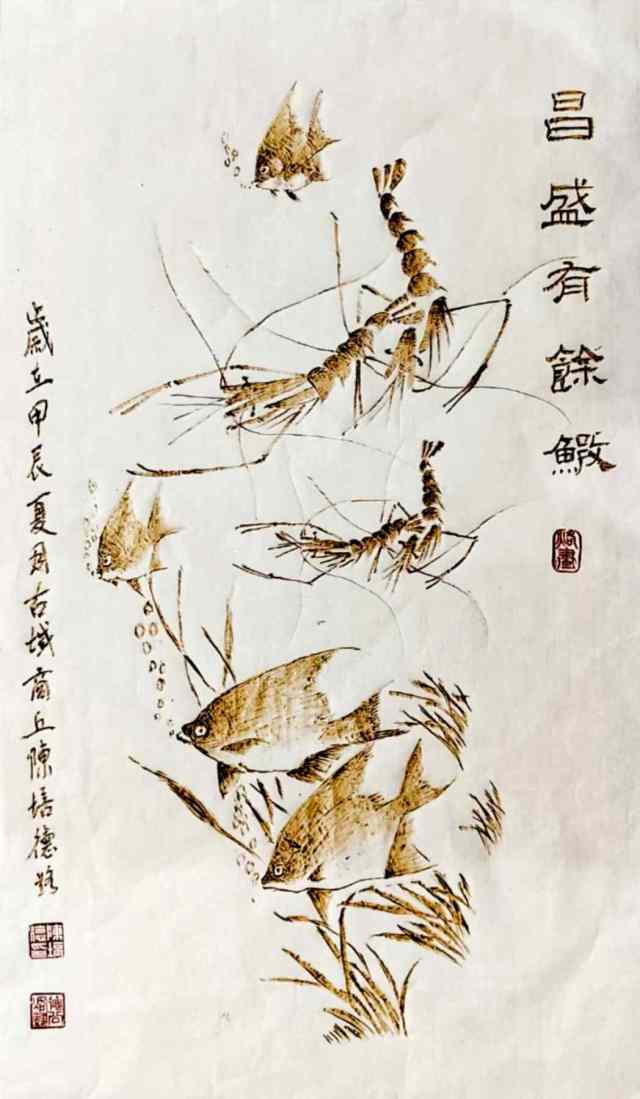 昌盛有餘鰕
烙畫
歲在甲辰夏月古城商丘陳培德烙